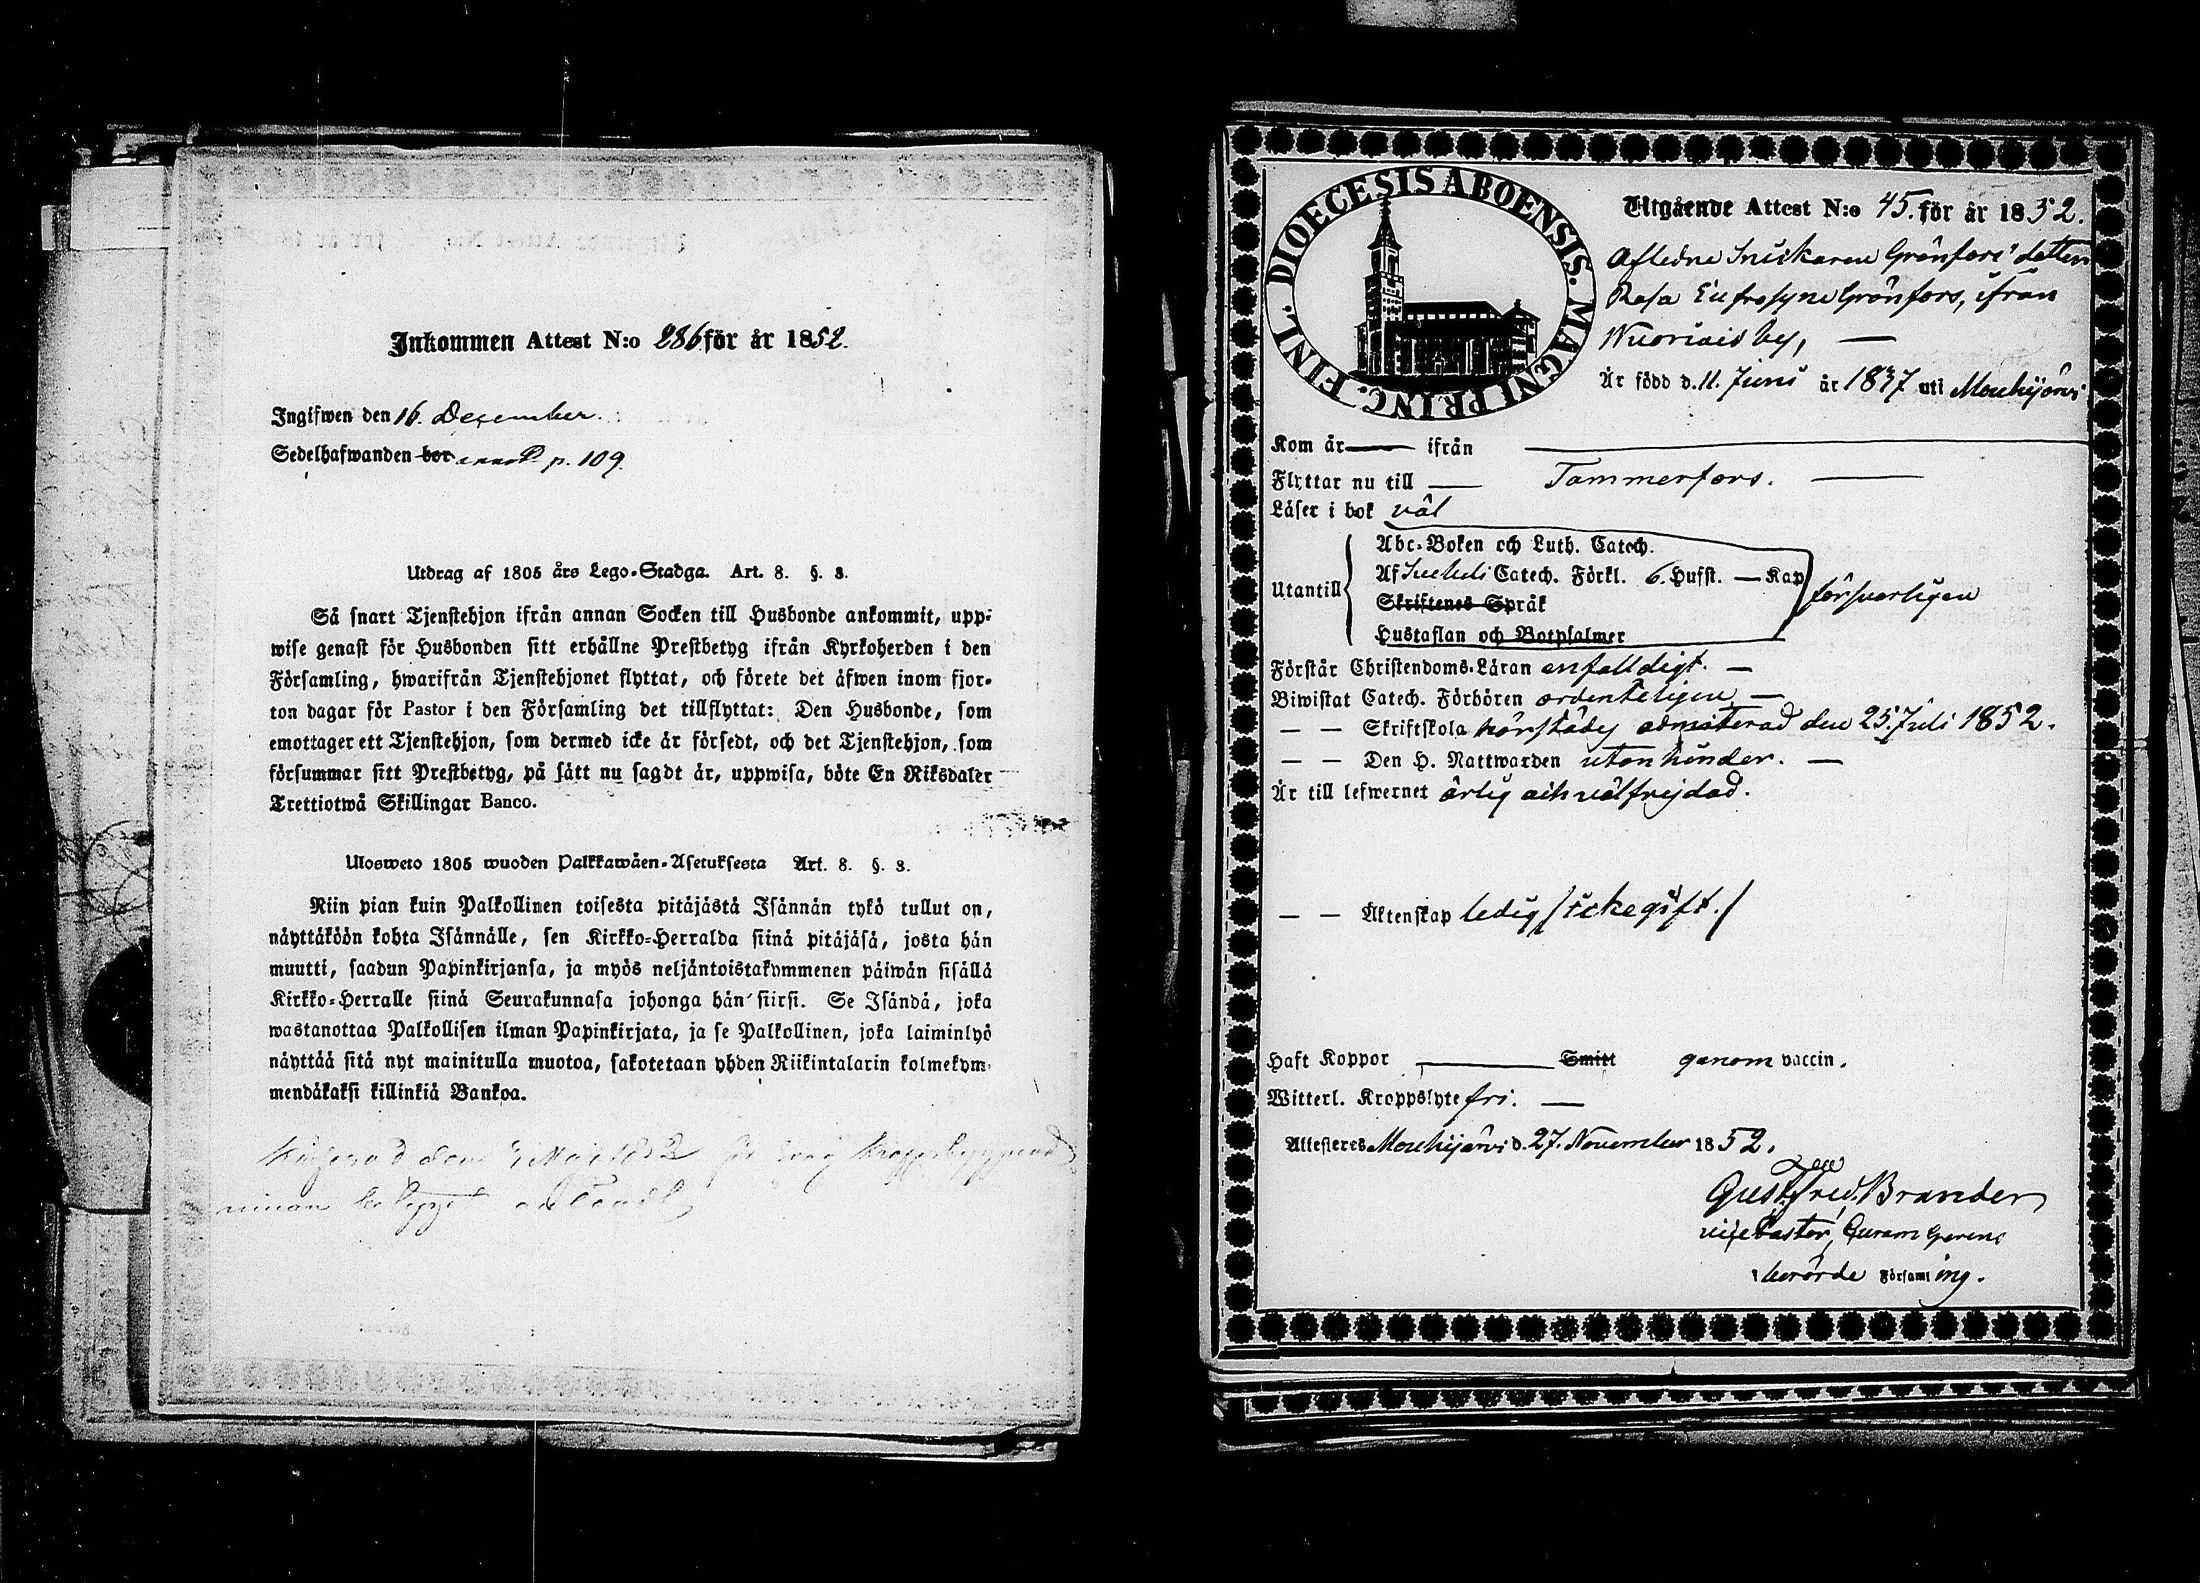 Inkommen Attest N:o 286 för år 1852.
Ingifwen den 16. December.
Sedelhafwanden bor p. 109.
Utdrag af 1805 års Lego-Stadga. Art. 8. §. 3.
Så snart Tjenstehjon ifrån annan Socken till Husbonde ankommit, upp-
wise genast för Husbonden sitt erhållne Prestbetyg ifrån Kyrkoherden i den
Församling, hwarifrån Tjenstehjonet flyttat, och förete det äfwen inom fjor-
ton dagar för Pastor i den Församling det tillflyttat: Den Husbonde, som
emottager ett Tjenstehjon, som dermed icke är försedt, och det Tjenstehjon, som
försummar sitt Prestbetyg, på sätt nu sagdt är, uppwisa, böte En Riksdaler
Trettiotwå Skillingar Banco.
Ulosweto 1805 wuoden Palkkawäen-Asetuksesta Art. 8. §. 3.
Niin pian kuin Palkollinen toisesta pitäjästä Isännän tykö tullut on,
näyttäköön kohta Isännälle, sen Kirkko-Herralda siinä pitäjäsä, josta hän
muutti, saadun Papinkirjansa, ja myös neljäntoistakymmenen päiwän sisällä
Kirkko-Herralle siinä Seurakunnasa johonga hän siirsi. Se Isändä, joka
wastanottaa Palkollisen ilman Papinkirjata, ja se Palkollinen, joka laiminlyö
näyttää sitä nyt mainitulla muotoa, sakotetaan yhden Riikintalarin kolmekym-
mendäkaksi killinkiä Bankoa.
FINL. DIOECESIS ABOENSIS. MAGNI PRINC.
Utgående Attest N:o 45. för år 1852.
Aflidne Inhisaren Grönfors' dotter
Rosa Eufrosyne Grönfors, ifrån
by,
Är född d. 11. Juni år 1837 uti Mouhijärvi
Kom år — ifrån
Flyttar nu till — Tammerfors. —
Läser i bok väl
Utantill
Abc-Boken och Luth. Catech.
Af Catech. Förkl. 6. Hufst. — Kap
Skriftenes Språk
Hustaflan och Botpsalmer
försvarligen
Förstår Christendoms-Läran enfaldigt. —
Biwistat Catech. Förhören ordenteligen —
— — Skriftskola admitterad den 25 Juli 1852.
— — Den H. Nattwarden utan hinder. —
Är till lefwernet ärlig och välfrejdad.
— — Äktenskap ledig /icke gift./
Haft Koppor — Smitt genom vaccin.
Witterl. Kroppslyte fri. —
Attesteres Mouhijärvi d. 27. November 1852.
Gust. Fred. Brander
vice Pastor, Curam Gerens
i berörde Församling.